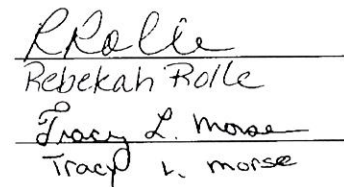 RRolle
Rebekah Rolle
Tracy L. Morse
Tracy L. Morse